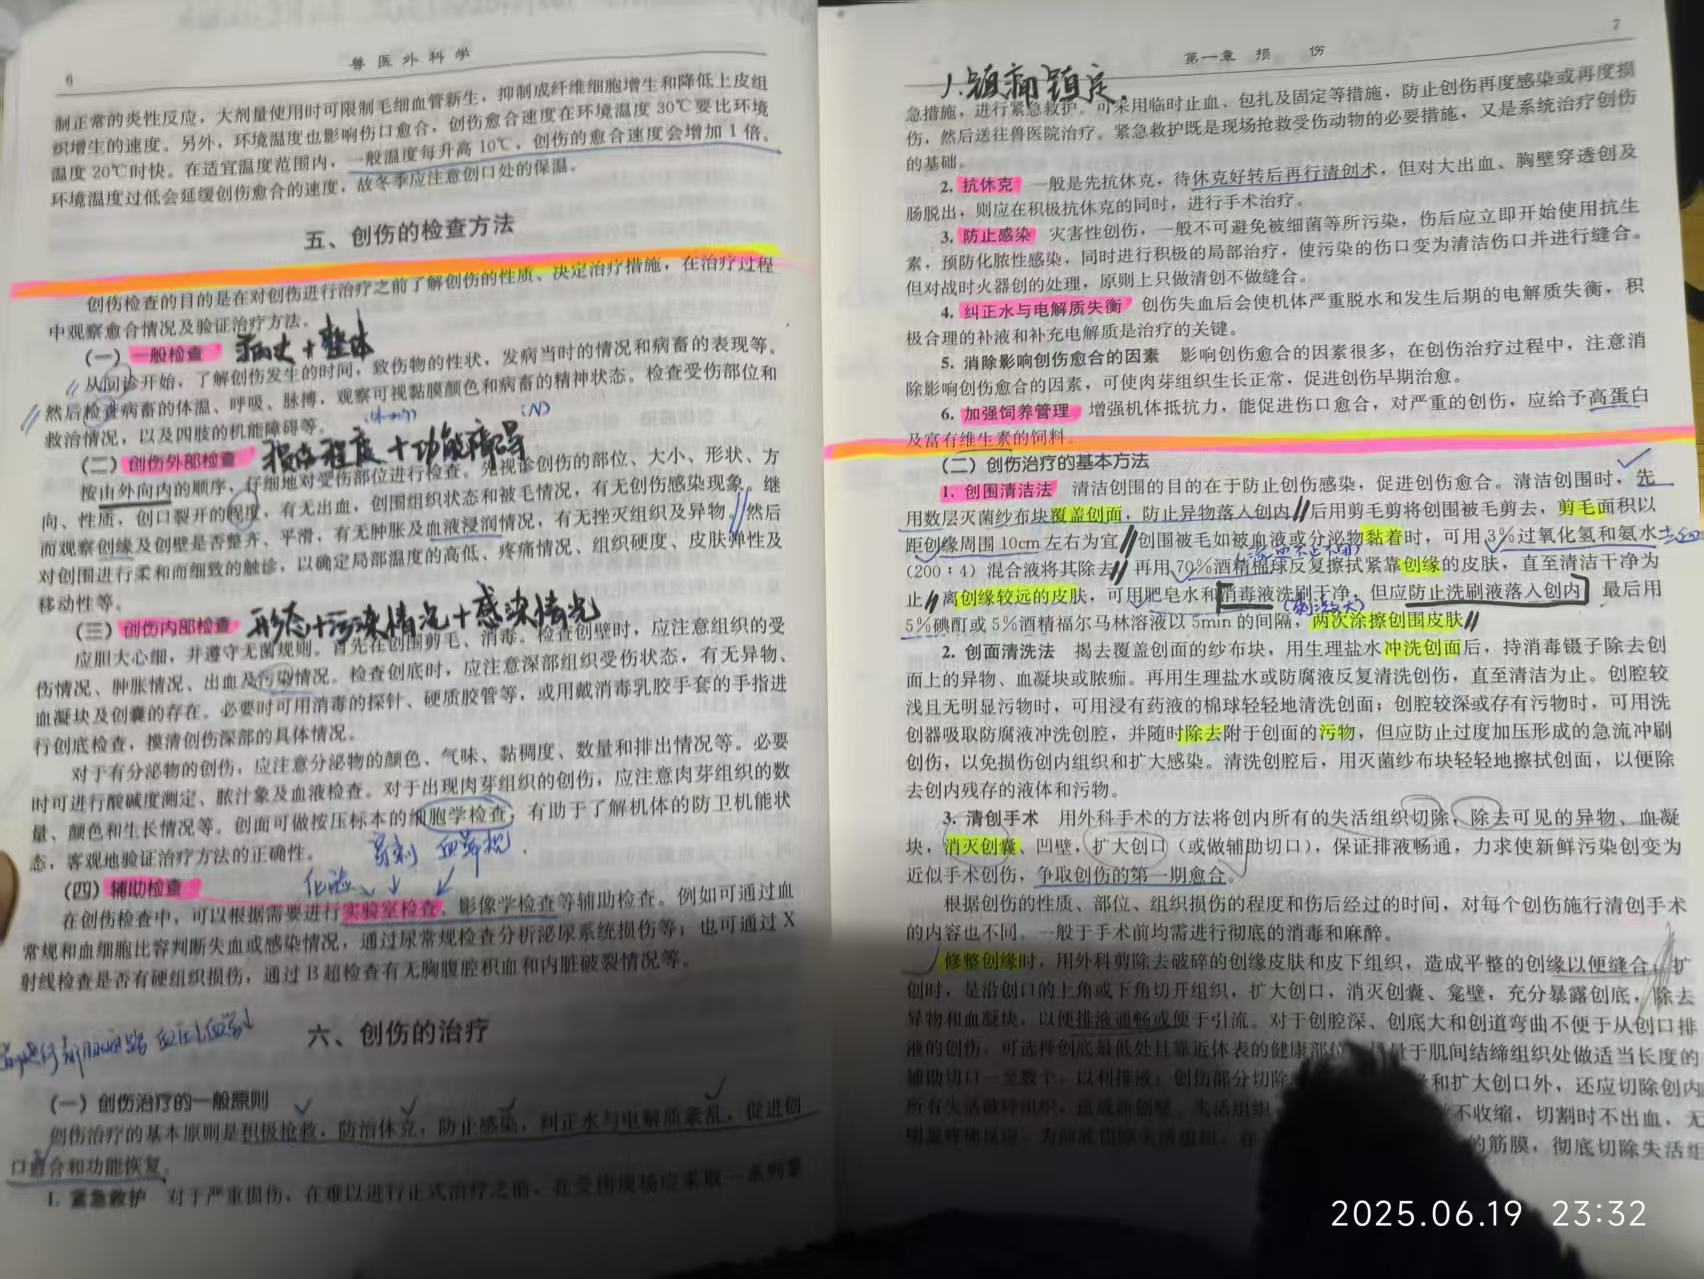 6
兽医外科学
制正常的炎性反应，大剂量使用时可限制毛细血管新生，抑制成纤维细胞增生和降低上皮组
织增生的速度。另外，环境温度也影响伤口愈合，创伤愈合速度在环境温度30℃要比环境
温度20℃时快。在适宜温度范围内，一般温度每升高10℃，创伤的愈合速度会增加1倍。
环境温度过低会延缓创伤愈合的速度，故冬季应注意创口处的保温。
五、创伤的检查方法
创伤检查的目的是在对创伤进行治疗之前了解创伤的性质、决定治疗措施，在治疗过程
中观察愈合情况及验证治疗方法。
（一）一般检查 病史+整体
从问诊开始，了解创伤发生的时间，致伤物的性状，发病当时的情况和病畜的表现等。
然后检查病畜的体温、呼吸、脉搏，观察可视黏膜颜色和病畜的精神状态。检查受伤部位和
救治情况，以及四肢的机能障碍等。
（二）创伤外部检查 损伤程度+功能障碍
按由外向内的顺序，仔细地对受伤部位进行检查。先视诊创伤的部位、大小、形状、方
向、性质，创口裂开的程度，有无出血，创围组织状态和被毛情况，有无创伤感染现象。继
而观察创缘及创壁是否整齐、平滑，有无肿胀及血液浸润情况，有无挫灭组织及异物。然后
对创围进行柔和而细致的触诊，以确定局部温度的高低、疼痛情况、组织硬度、皮肤弹性及
移动性等。
（三）创伤内部检查 形态+污染情况+感染情况
应胆大心细，并遵守无菌规则。首先在创围剪毛、消毒。检查创壁时，应注意组织的受
伤情况、肿胀情况、出血及污染情况。检查创底时，应注意深部组织受伤状态，有无异物、
血凝块及创囊的存在。必要时可用消毒的探针、硬质胶管等，或用戴消毒乳胶手套的手指进
行创底检查，摸清创伤深部的具体情况。
对于有分泌物的创伤，应注意分泌物的颜色、气味、黏稠度、数量和排出情况等。必要
时可进行酸碱度测定、脓汁象及血液检查。对于出现肉芽组织的创伤，应注意肉芽组织的数
量、颜色和生长情况等。创面可做按压标本的细胞学检查，有助于了解机体的防卫机能状
态，客观地验证治疗方法的正确性。
穿刺 血常规
（四）辅助检查 化验
在创伤检查中，可以根据需要进行实验室检查、影像学检查等辅助检查。例如可通过血
常规和血细胞比容判断失血或感染情况，通过尿常规检查分析泌尿系统损伤等；也可通过X
射线检查是否有硬组织损伤，通过B超检查有无胸腹腔积血和内脏破裂情况等。
六、创伤的治疗
（一）创伤治疗的一般原则
创伤治疗的基本原则是积极抢救，防治休克，防止感染，纠正水与电解质紊乱，促进创
口愈合和功能恢复。
1. 紧急救护 对于严重损伤，在难以进行正式治疗之前，在受伤现场应采取一系列紧
第一章 损 伤
7
1.镇痛镇定.
急措施，进行紧急救护。可采用临时止血、包扎及固定等措施，防止创伤再度感染或再度损
伤，然后送往兽医院治疗。紧急救护既是现场抢救受伤动物的必要措施，又是系统治疗创伤
的基础。
2. 抗休克 一般是先抗休克，待休克好转后再行清创术，但对大出血、胸壁穿透创及
肠脱出，则应在积极抗休克的同时，进行手术治疗。
3. 防止感染 灾害性创伤，一般不可避免被细菌等所污染，伤后应立即开始使用抗生
素，预防化脓性感染，同时进行积极的局部治疗，使污染的伤口变为清洁伤口并进行缝合。
但对战时火器创的处理，原则上只做清创不做缝合。
4. 纠正水与电解质失衡 创伤失血后会使机体严重脱水和发生后期的电解质失衡，积
极合理的补液和补充电解质是治疗的关键。
5. 消除影响创伤愈合的因素 影响创伤愈合的因素很多，在创伤治疗过程中，注意消
除影响创伤愈合的因素，可使肉芽组织生长正常，促进创伤早期治愈。
6. 加强饲养管理 增强机体抵抗力，能促进伤口愈合，对严重的创伤，应给予高蛋白
及富有维生素的饲料。
（二）创伤治疗的基本方法
1. 创围清洁法 清洁创围的目的在于防止创伤感染，促进创伤愈合。清洁创围时，先
用数层灭菌纱布块覆盖创面，防止异物落入创内。后用剪毛剪将创围被毛剪去，剪毛面积以
距创缘周围10cm左右为宜。创围被毛如被血液或分泌物黏着时，可用3%过氧化氢和氨水
（200∶4）混合液将其除去。再用70%酒精棉球反复擦拭紧靠创缘的皮肤，直至清洁干净为
止。离创缘较远的皮肤，可用肥皂水和消毒液洗刷干净，但应防止洗刷液落入创内。最后用
5%碘酊或5%酒精福尔马林溶液以5min的间隔，两次涂擦创围皮肤。
2. 创面清洗法 揭去覆盖创面的纱布块，用生理盐水冲洗创面后，持消毒镊子除去创
面上的异物、血凝块或脓痂。再用生理盐水或防腐液反复清洗创伤，直至清洁为止。创腔较
浅且无明显污物时，可用浸有药液的棉球轻轻地清洗创面；创腔较深或存有污物时，可用洗
创器吸取防腐液冲洗创腔，并随时除去附于创面的污物，但应防止过度加压形成的急流冲刷
创伤，以免损伤创内组织和扩大感染。清洗创腔后，用灭菌纱布块轻轻地擦拭创面，以便除
去创内残存的液体和污物。
3. 清创手术 用外科手术的方法将创内所有的失活组织切除，除去可见的异物、血凝
块，消灭创囊、凹壁，扩大创口（或做辅助切口），保证排液畅通，力求使新鲜污染创变为
近似手术创伤，争取创伤的第一期愈合。
根据创伤的性质、部位、组织损伤的程度和伤后经过的时间，对每个创伤施行清创手术
的内容也不同。一般于手术前均需进行彻底的消毒和麻醉。
修整创缘时，用外科剪除去破碎的创缘皮肤和皮下组织，造成平整的创缘以便缝合；扩
创时，是沿创口的上角或下角切开组织，扩大创口，消灭创囊、龛壁，充分暴露创底，除去
异物和血凝块，以便排液通畅或便于引流。对于创腔深、创底大和创道弯曲不便于从创口排
液的创伤，可选择创底最低处且靠近体表的健康部位，尽量于肌间结缔组织处做适当长度的
辅助切口一至数个，以利排液；创伤部分切除 和扩大创口外，还应切除创内
所有失活破碎组织，造成新创壁。失活组织 不收缩，切割时不出血，无
明显疼痛反应。为彻底切除失活组织，在 的筋膜，彻底切除失活组
2025.06.19 23:32